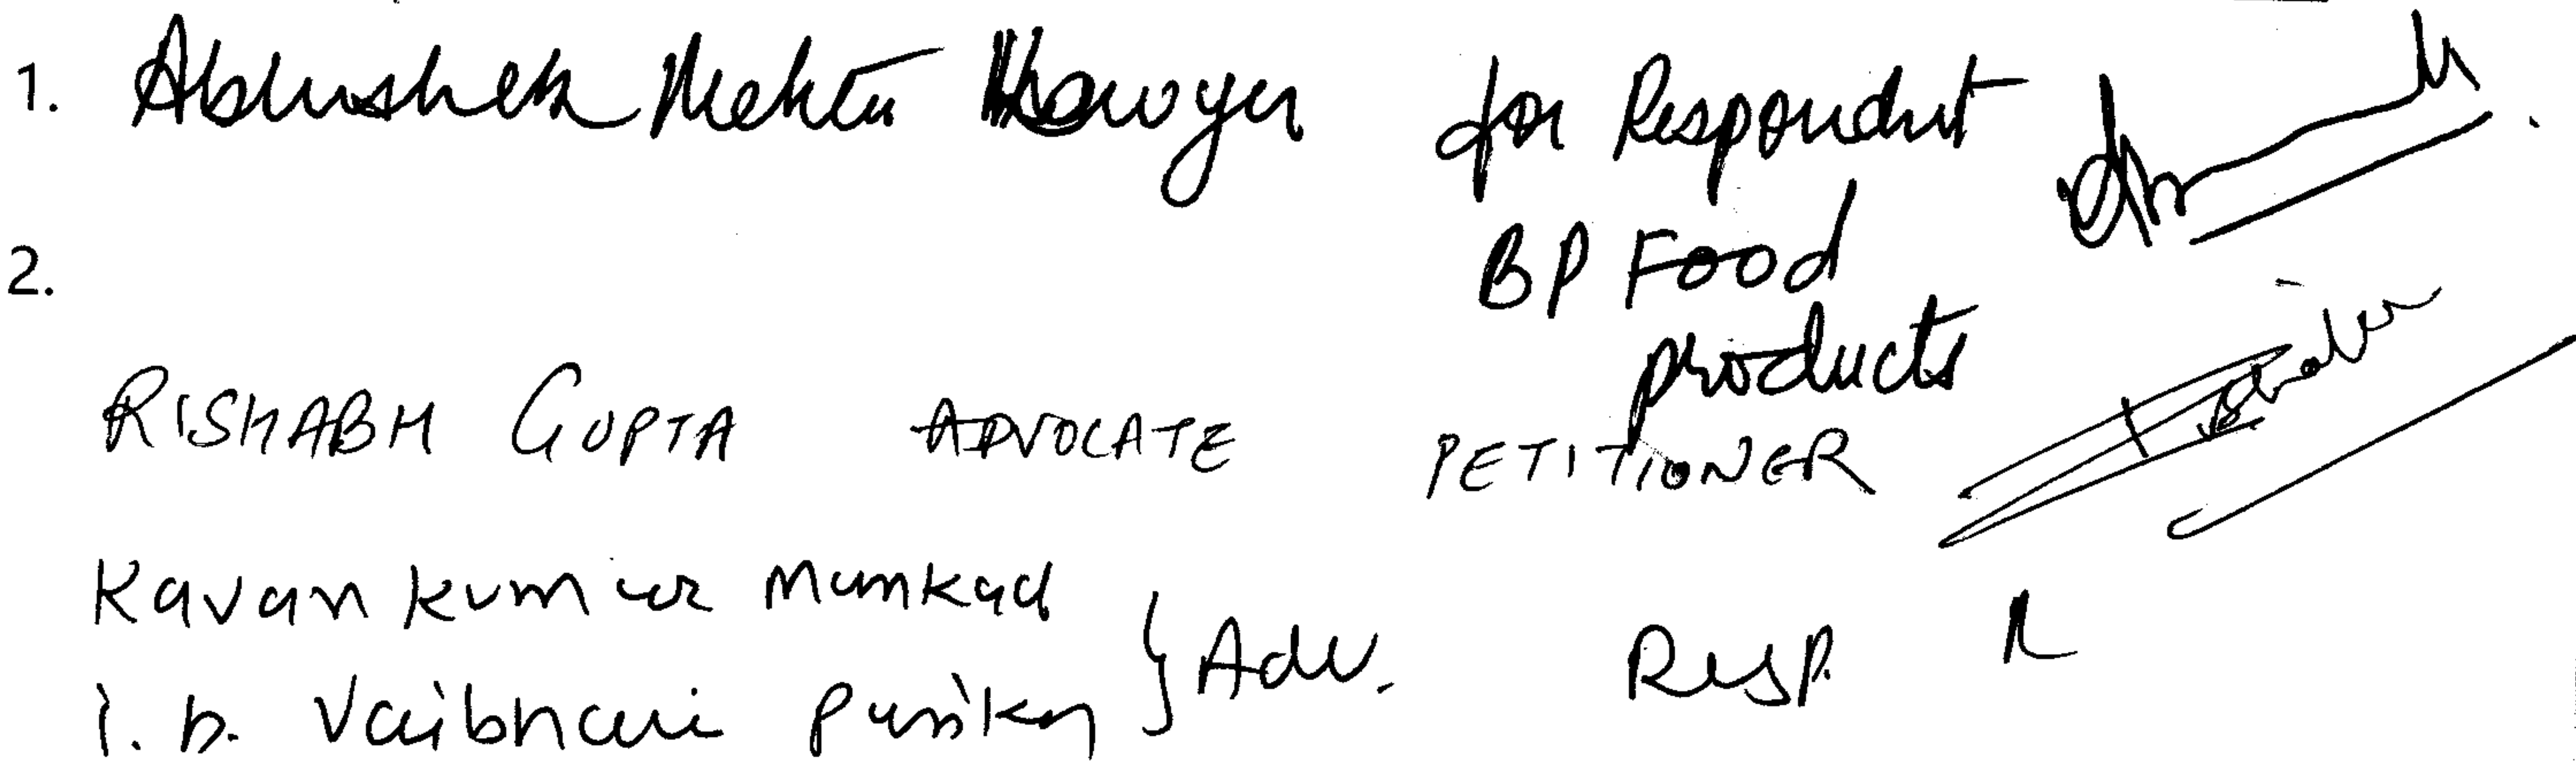 1. Abhishek Mehta Lawyer for Respondent
BP Food
2.
products
RISHABH GUPTA ADVOCATE PETITIONER
Kavan kumar Mankad
Adv. Resp.
i. b. Vaibhavi